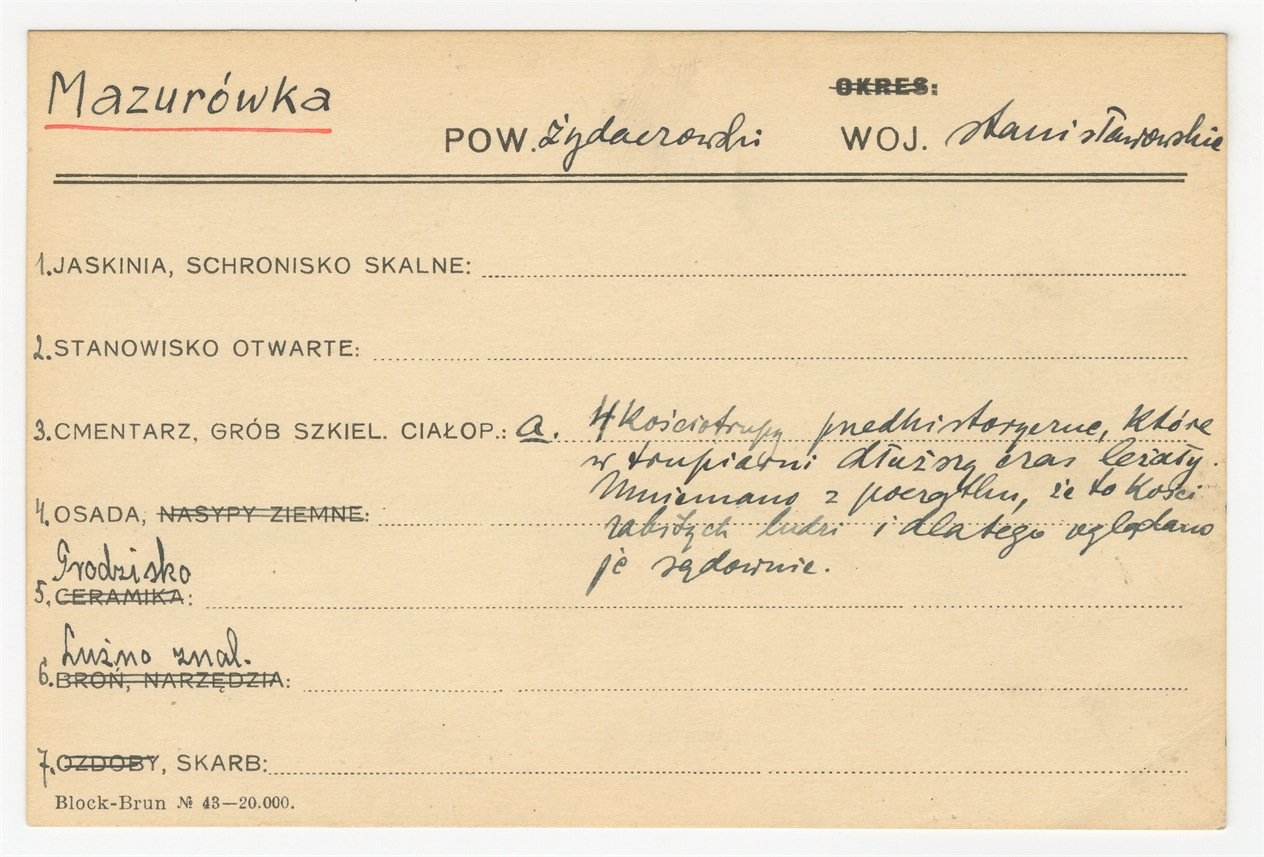 Mazurówka
OKRES:
POW. żydaczowski WOJ. stanisławowskie
1. JASKINIA, SCHRONISKO SKALNE:
2. STANOWISKO OTWARTE:
3. CMENTARZ, GRÓB SZKIEL. CIAŁOP.: a. 4 Kościotrupy predhistoryczne, które
w trupiarni dłuższy czas leżały.
Mniemano z początku, że to Kości
4. OSADA, NASYPY ZIEMNE:
zabitych ludzi i dlatego oglądano
je sądownie.
Grodzisko
5. CERAMIKA:
Luźno znal.
6. BROŃ, NARZĘDZIA:
7. OZDOBY, SKARB:
Block-Brun № 43—20.000.